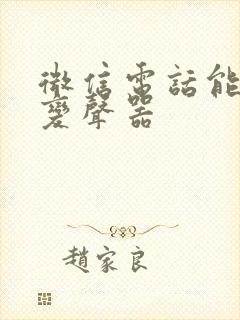 微信電話能
變聲器
趙家良